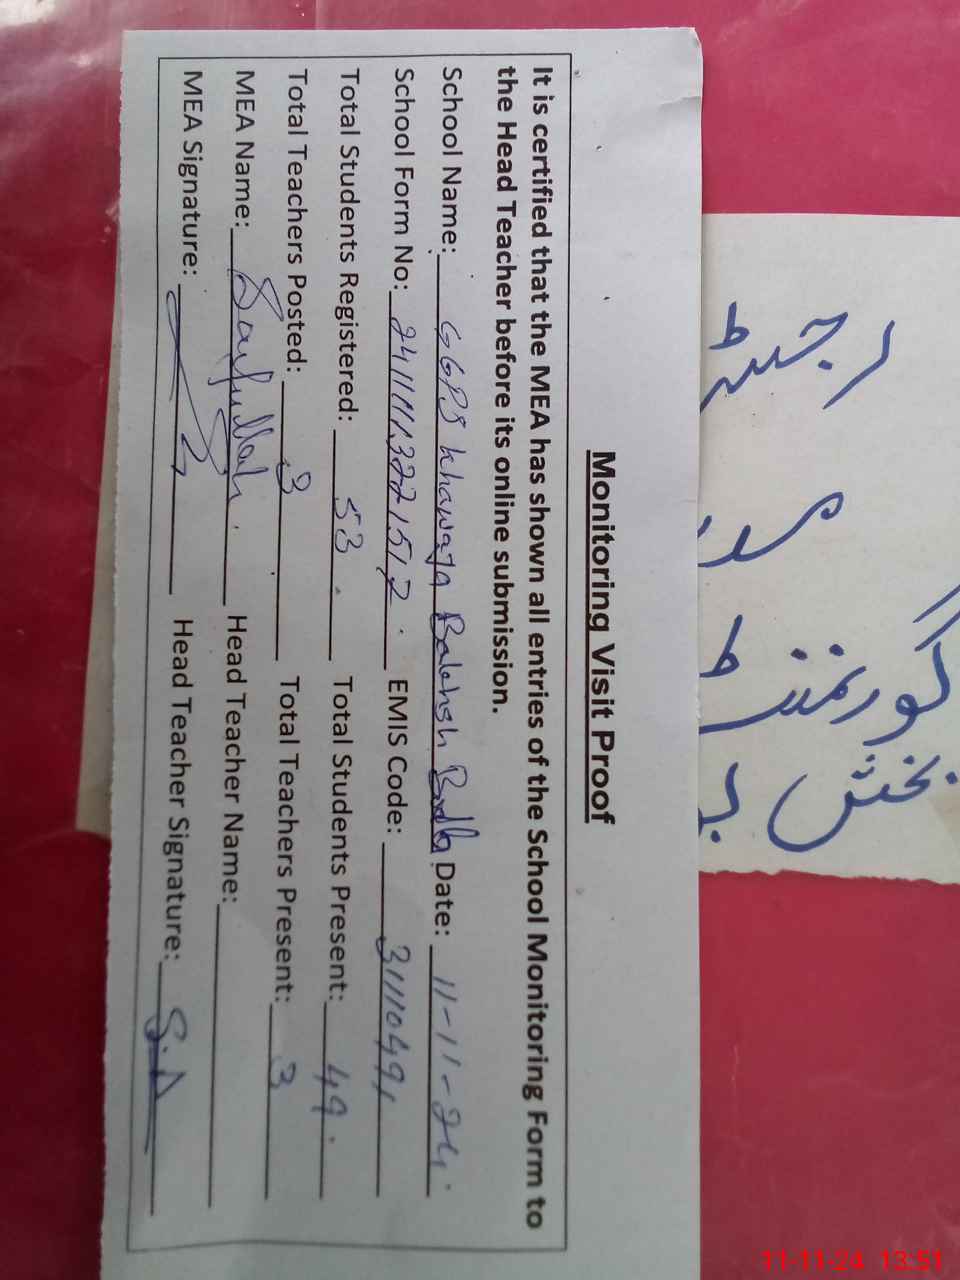 Monitoring Visit Proof
It is certified that the MEA has shown all entries of the School Monitoring Form to
the Head Teacher before its online submission.
School Name: GGPS Khawaja Bakhsh Bodla Date: 11-11-24.
School Form No: EMIS Code: 31110491
Total Students Registered: 53. Total Students Present: 49.
Total Teachers Posted: 3 Total Teachers Present: 3
MEA Name: Saifullah. Head Teacher Name:
MEA Signature: Head Teacher Signature: S.A
رجسٹر
گورنمنٹ
بخش
11-11-24 13:51